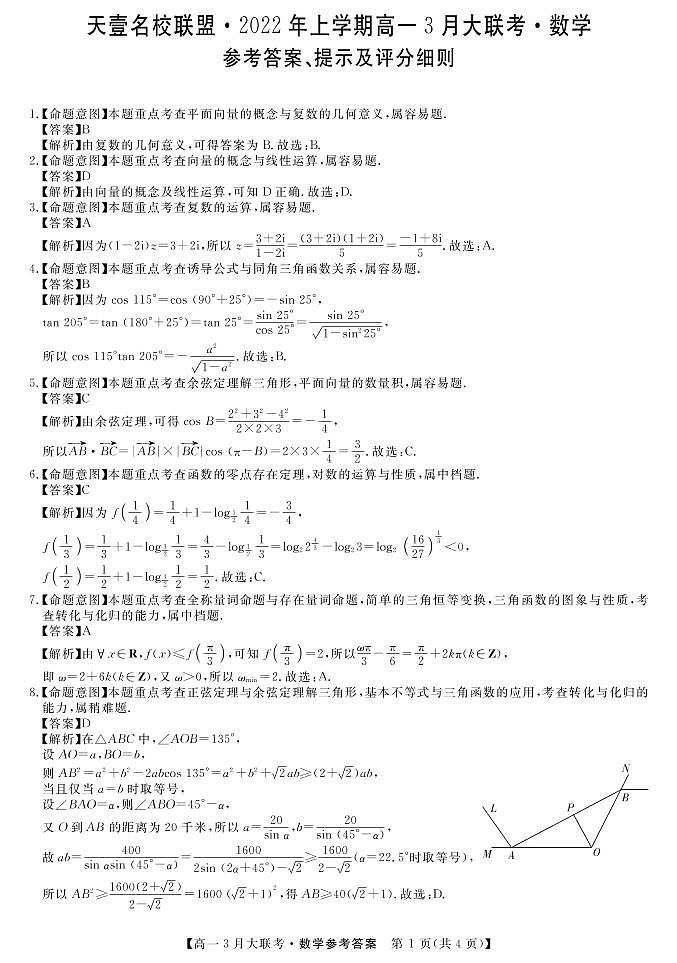 天壹名校联盟·2022年上学期高一3月大联考·数学
参考答案、提示及评分细则
1.【命题意图】本题重点考查平面向量的概念与复数的几何意义,属容易题.
【答案】B
【解析】由复数的几何意义,可得答案为 B. 故选:B.
2.【命题意图】本题重点考查向量的概念与线性运算,属容易题.
【答案】D
【解析】由向量的概念及线性运算,可知 D 正确. 故选:D.
3.【命题意图】本题重点考查复数的运算,属容易题.
【答案】A
【解析】因为(1−2i)z=3+2i,所以 z=\frac{3+2i}{1-2i}=\frac{(3+2i)(1+2i)}{5}=\frac{-1+8i}{5}. 故选:A.
4.【命题意图】本题重点考查诱导公式与同角三角函数关系,属容易题.
【答案】B
【解析】因为 cos 115°=cos (90°+25°)=−sin 25°,
tan 205°=tan (180°+25°)=tan 25°=\frac{sin 25°}{cos 25°}=\frac{sin 25°}{\sqrt{1-sin^2 25°}},
所以 cos 115°tan 205°=−\frac{a^2}{\sqrt{1-a^2}}. 故选:B.
5.【命题意图】本题重点考查余弦定理解三角形,平面向量的数量积,属容易题.
【答案】C
【解析】由余弦定理,可得 cos B=\frac{2^2+3^2-4^2}{2×2×3}=−\frac{1}{4},
所以\overrightarrow{AB}·\overrightarrow{BC}=|\overrightarrow{AB}|×|\overrightarrow{BC}|cos (π−B)=2×3×\frac{1}{4}=\frac{3}{2}. 故选:C.
6.【命题意图】本题重点考查函数的零点存在定理,对数的运算与性质,属中档题.
【答案】C
【解析】因为 f(\frac{1}{4})=\frac{1}{4}+1−log_{\frac{1}{2}}\frac{1}{4}=−\frac{3}{4},
f(\frac{1}{3})=\frac{1}{3}+1−log_{\frac{1}{2}}\frac{1}{3}=\frac{4}{3}−log_{\frac{1}{2}}\frac{1}{3}=log_2 2^{\frac{4}{3}}−log_2 3=log_2 (\frac{16}{27})^{\frac{1}{3}}<0,
f(\frac{1}{2})=\frac{1}{2}+1−log_{\frac{1}{2}}\frac{1}{2}=\frac{1}{2}. 故选:C.
7.【命题意图】本题重点考查全称量词命题与存在量词命题,简单的三角恒等变换,三角函数的图象与性质,考
查转化与化归的能力,属中档题.
【答案】A
【解析】由∀x∈R,f(x)≤f(\frac{π}{3}),可知 f(\frac{π}{3})=2,所以\frac{ωπ}{3}−\frac{π}{6}=\frac{π}{2}+2kπ(k∈Z),
即 ω=2+6k(k∈Z),又 ω>0,所以 ω_{min}=2. 故选:A.
8.【命题意图】本题重点考查正弦定理与余弦定理解三角形,基本不等式与三角函数的应用,考查转化与化归的
能力,属稍难题.
【答案】D
【解析】在△ABC 中,∠AOB=135°,
设 AO=a,BO=b,
则 AB²=a²+b²−2abcos 135°=a²+b²+\sqrt{2}ab≥(2+\sqrt{2})ab,
当且仅当 a=b 时取等号,
设∠BAO=α,则∠ABO=45°−α,
又 O 到 AB 的距离为 20 千米,所以 a=\frac{20}{sin α},b=\frac{20}{sin (45°-α)},
故 ab=\frac{400}{sin αsin (45°-α)}=\frac{1600}{2sin (2α+45°)-\sqrt{2}}≥\frac{1600}{2-\sqrt{2}}(α=22.5°时取等号),
所以 AB²≥\frac{1600(2+\sqrt{2})}{2-\sqrt{2}}=1600 (\sqrt{2}+1)²,得 AB≥40(\sqrt{2}+1). 故选:D.
N
B
L
P
M A O
【高一3月大联考·数学参考答案 第 1 页(共 4 页)】